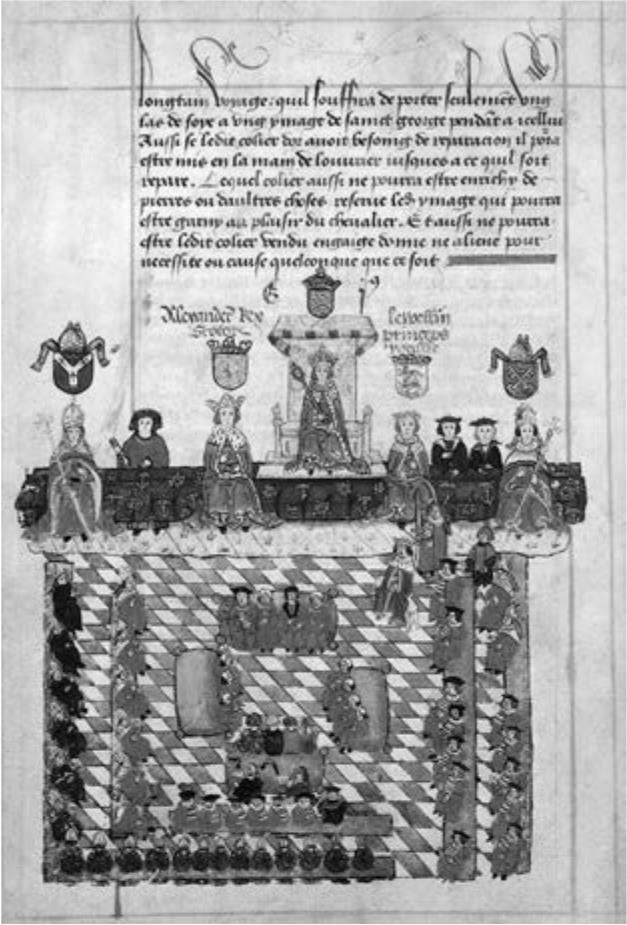 longtain voyage: quil souffira de porter seulemēt ung
las de soye a vng ymage de sainct george pendāt a icellui
Aussi se ledit colier dor auoit besoing de reparacion il porra
estre mis en la main de louurier iusques a ce quil soit
repare. Lequel colier aussi ne pourra estre enrichy de
pierres ou daultres choses reserue led ymage qui pourra
estre garny au plaisir du cheualier. Et aussi ne pourra
estre ledit colier vendu engaige donne ne aliene pour
necessite ou cause quelconque que ce soit
E
Alexander Rex lewellin
Scotor princeps